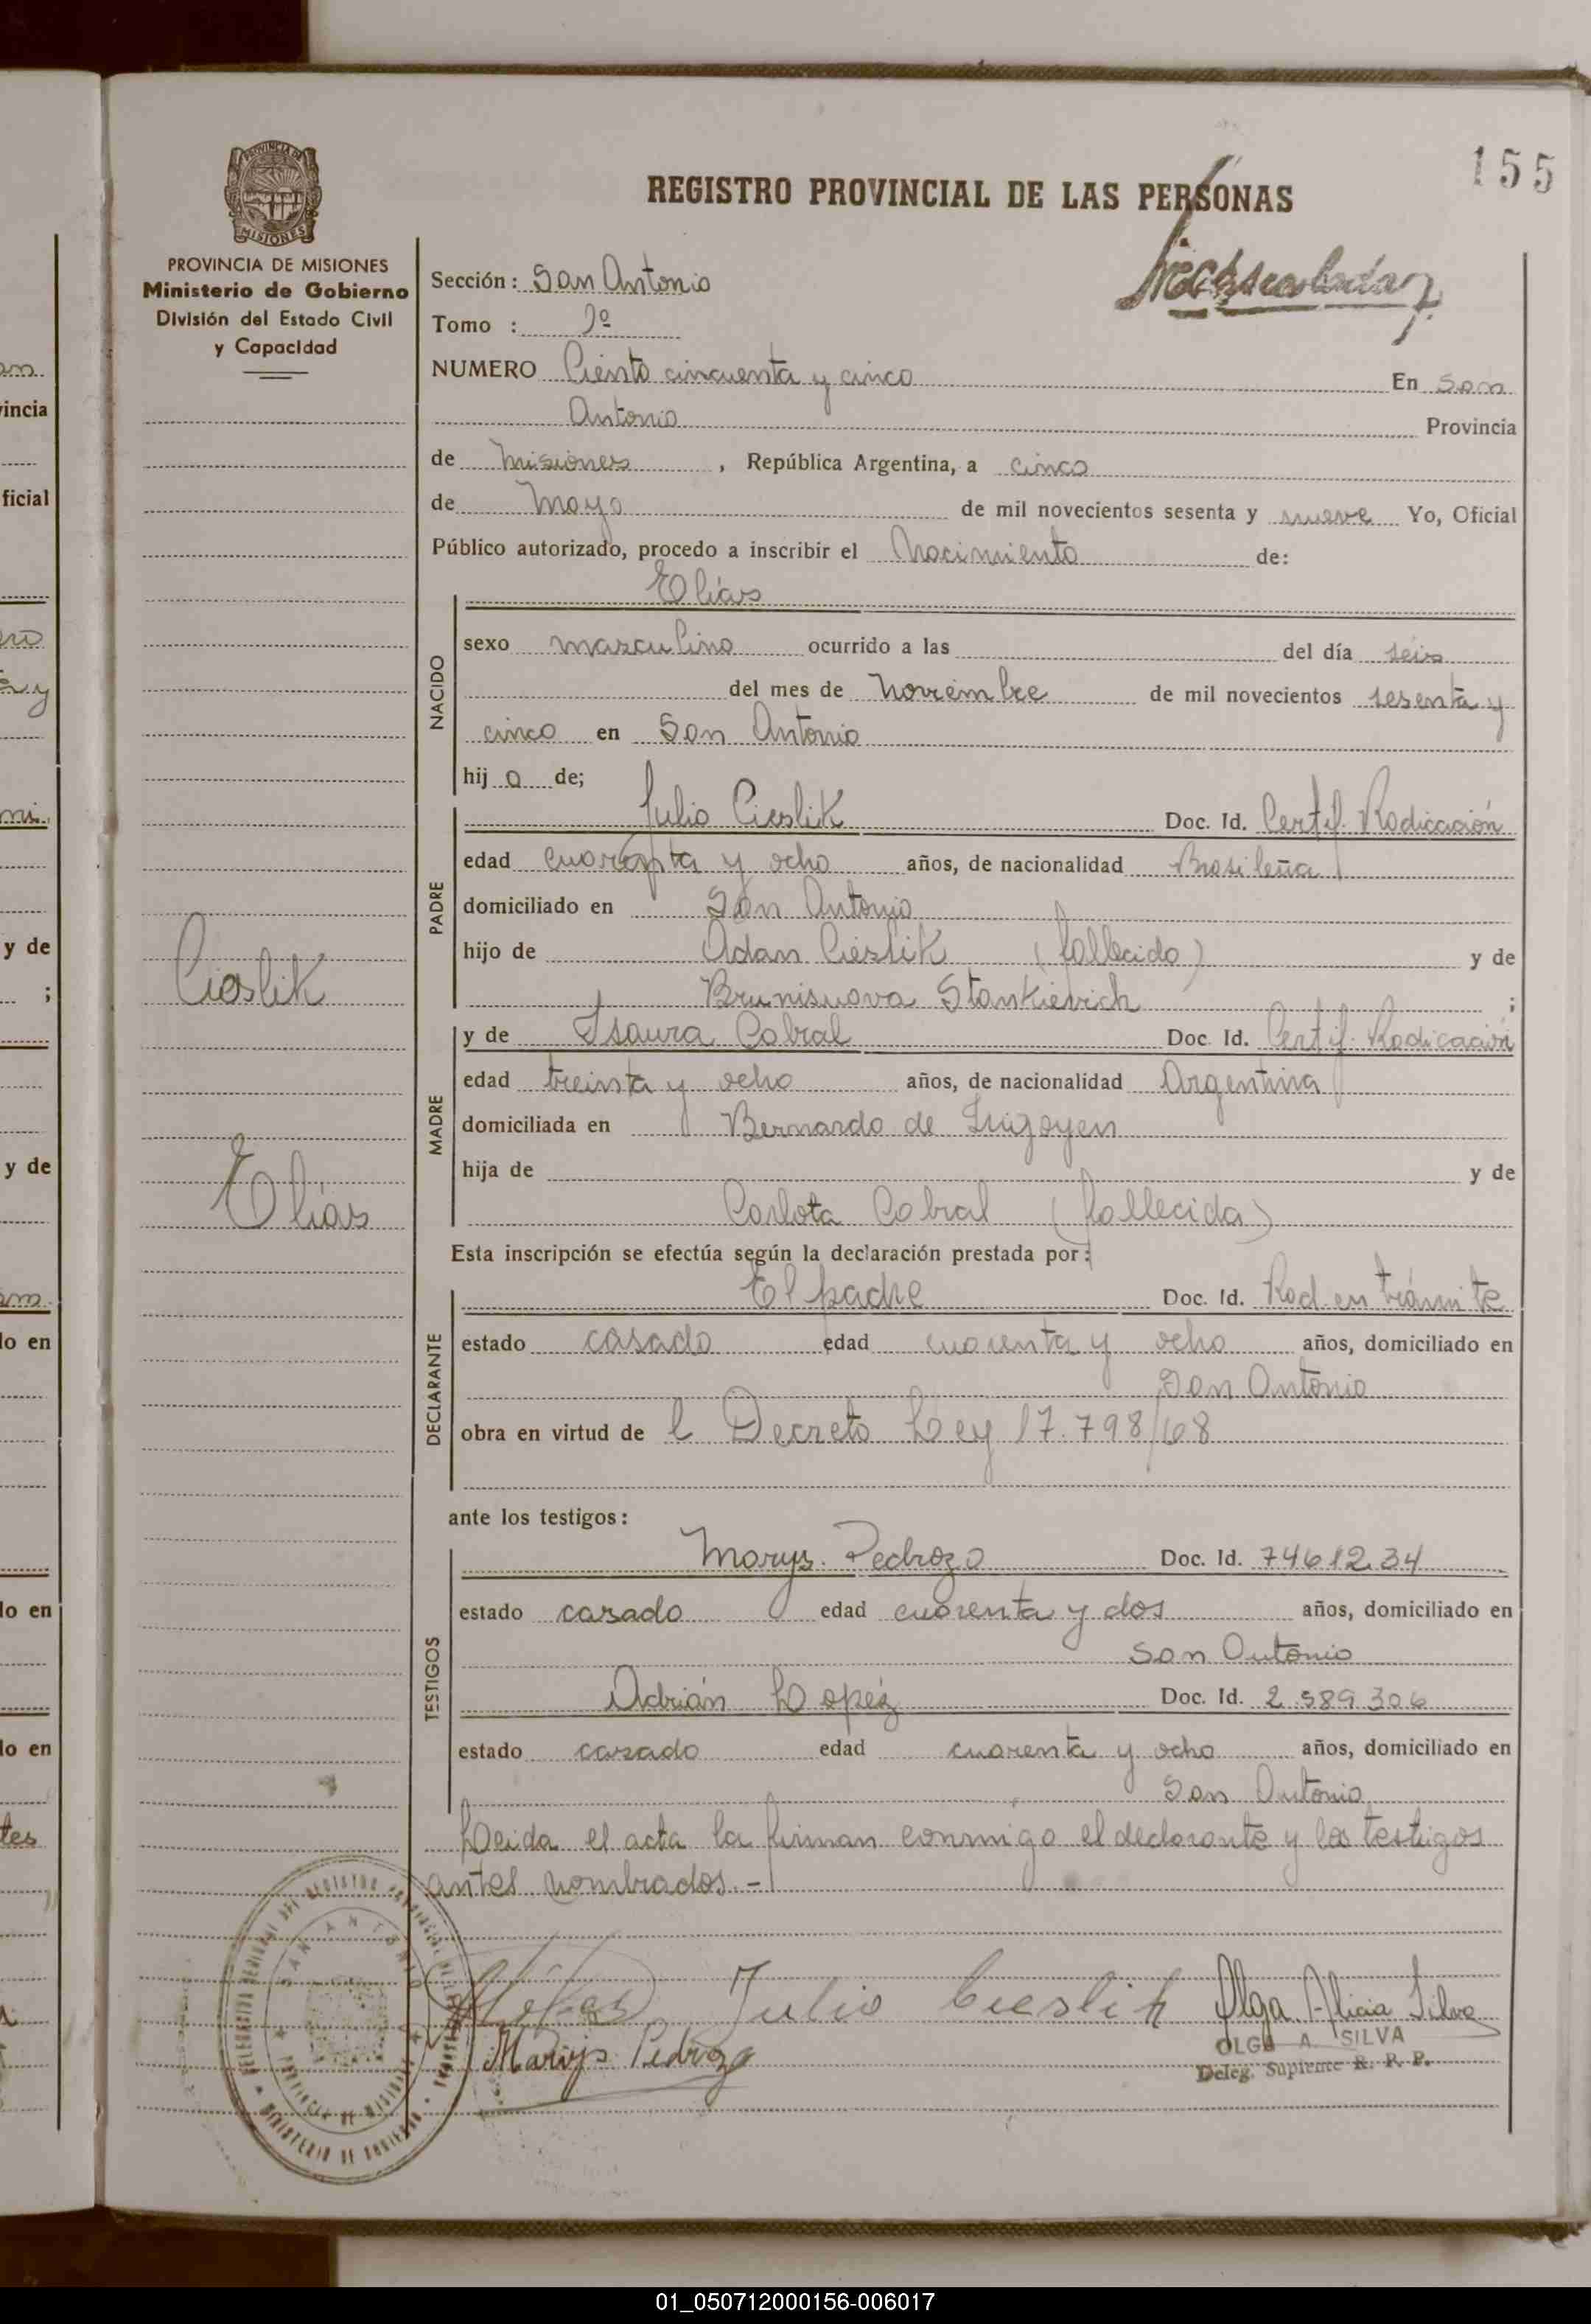 155
REGISTRO PROVINCIAL DE LAS PERSONAS
PROVINCIA DE MISIONES
Ministerio de Gobierno
División del Estado Civil
y Capacidad
Sección: San Antonio
Tomo :
NUMERO Ciento cincuenta y cinco En San
Antonio Provincia
de Misiones, República Argentina, a cinco
de Mayo de mil novecientos sesenta y nueve Yo, Oficial
Público autorizado, procedo a inscribir el Nacimiento de:
Elías
NACIDO
sexo masculino ocurrido a las del día seis
del mes de Noviembre de mil novecientos sesenta y
cinco en San Antonio
hij o de;
PADRE
Julio Cieslik Doc. Id. Certif. Radicación
edad cuarenta y ocho años, de nacionalidad Brasileña
domiciliado en San Antonio
hijo de Adan Cieslik (fallecido) y de
Stankievich ;
Cieslik
Elías
MADRE
y de Isaura Cabral Doc. Id. Certif. Radicación
edad treinta y ocho años, de nacionalidad Argentina
domiciliada en Bernardo de Irigoyen
hija de y de
Carlota Cabral (fallecida)
Esta inscripción se efectúa según la declaración prestada por:
DECLARANTE
El padre Doc. Id. Rad. en trámite
estado casado edad cuarenta y ocho años, domiciliado en
San Antonio
obra en virtud de l Decreto Ley 17.798/68
ante los testigos:
TESTIGOS
Marys Pedrozo Doc. Id. 7461234
estado casado edad cuarenta y dos años, domiciliado en
San Antonio
Adrián Lopéz Doc. Id. 2.589.306
estado casado edad cuarenta y ocho años, domiciliado en
San Antonio
Leida el acta la firman conmigo el declarante y los testigos
antes nombrados.-
Julio Cieslik Olga Alicia Silva
Marys Pedrozo
OLGA A. SILVA
Deleg. Suplente R. P. P.
SAN ANTONIO
PROVINCIA DE MISIONES
MINISTERIO DE GOBIERNO
01_050712000156-006017